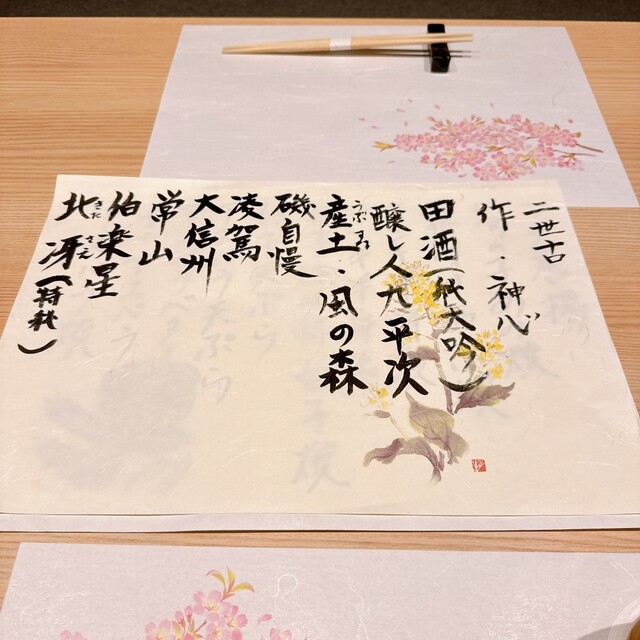 二世古
作・神心
田酒(純大吟)
醸し人九平次
うぶすな
産土・風の森
磯自慢
凌駕
大信州
常山
伯楽星
きたさえ
北冴(特純)